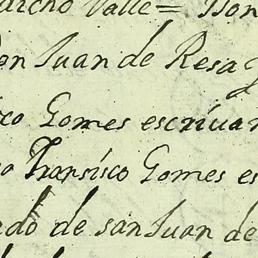 dicho Valle = Don
Don Juan de Resa
co Gomes escriuan
o Fransisco Gomes es
ado de san Juan de